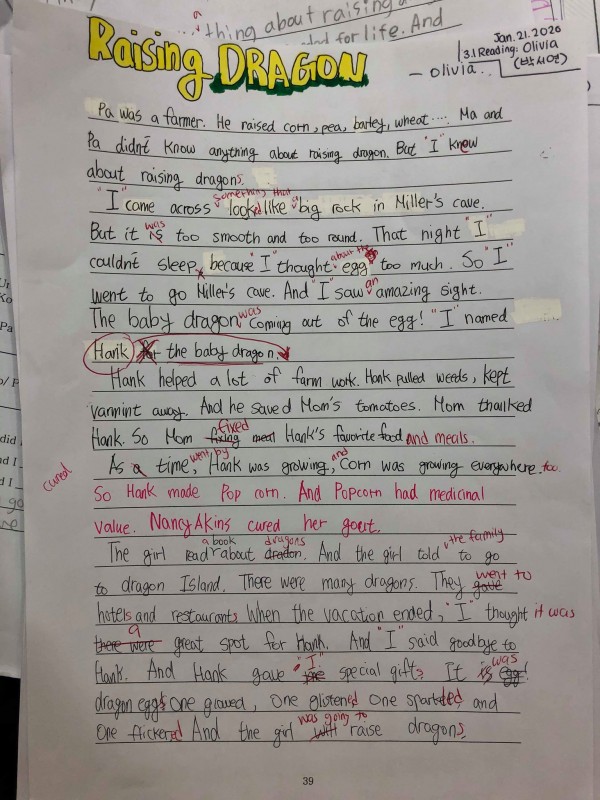 a
thing about raising
for life. And
Jan. 21. 2026
3.1 Reading: Olivia
(박시연)
Raising DRAGON
- Olivia..
Pa was a farmer. He raised corn, pea, barley, wheat.... Ma and
Pa didn't know anything about raising dragon. But "I" knew
about raising dragons.
something that
"I" came across looked like a big rock in Miller's cave.
was
But it is too smooth and too round. That night "I"
about the
couldn't sleep, because "I" thought egg too much. So "I"
an
went to go Miller's cave. And "I" saw amazing sight.
was
The baby dragon coming out of the egg! "I" named
Hank for the baby dragon.
Hank helped a lot of farm work. Hank pulled weeds, kept
varmint away. And he saved Mom's tomatoes. Mom thanked
fixed
Hank. So Mom fixing meat Hank's favorite food and meals.
went by and
As a time, Hank was growing, Corn was growing everywhere. too.
cured
So Hank made Pop corn. And Popcorn had medicinal
value. Nancy Akins cured her goert.
a book dragons the family
The girl read about dragon. And the girl told to go
to dragon Island. There were many dragons. They gave went to
hotels and restaurants. When the vacation ended, "I" thought it was
a
there were great spot for Hank. And "I" said goodbye to
"I" was
Hank. And Hank gave special gifts. It is egg!
dragon eggs One glowed, One glistened One sparkled and
was going to
One flickered And the girl will raise dragons.
39